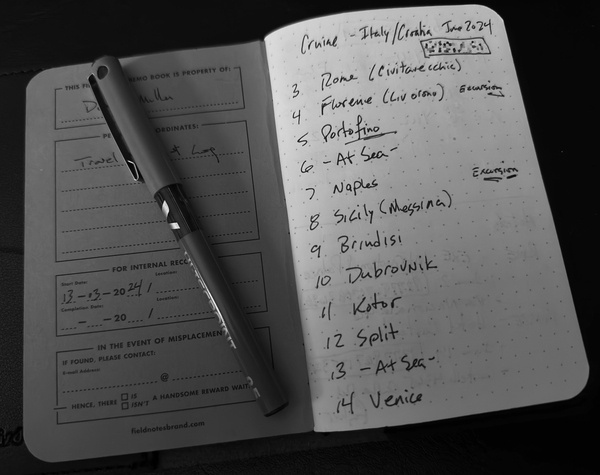 THIS MEMO BOOK IS PROPERTY OF:
D Miller
COORDINATES:
Travel Log
FOR INTERNAL
Start Date:
Location:
13-03-2024 /
Completion Date:
Location:
- -20 /
IN THE EVENT OF MISPLACEMENT
IF FOUND, PLEASE CONTACT:
E-mail Address:
@
HENCE, THERE IS
ISN'T A HANDSOME REWARD
fieldnotesbrand.com
Cruise - Italy/Croatia June 2024
3 Rome (Civitavecchia)
4 Florence (Livorno) Excursion
5 Portofino
6 -At Sea-
7 Naples Excursion
8 Sicily (Messina)
9 Brindisi
10 Dubrovnik
11 Kotor
12 Split
13 -At Sea-
14 Venice